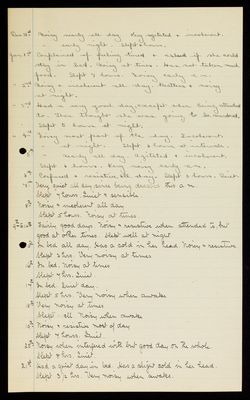 Dec 31st Noisy nearly all day. Very agitated & insolent
in early night. Slept 2 hours.
Jan 1st Complained of feeling tired & asked if she could
stay in bed. Noisy at times. Has not taken much
food. Slept 7 hours. Noisy early a.m.
2nd Noisy & insolent all day. Restless & noisy
at night.
3rd Had a very good day, except when being attended
to. Then thought she was going to be
Slept 5 hours at night.
4th Noisy most part of the day. Insolent
at night. Slept 3 hours at intervals.
nearly all day. Agitated & insolent.
Slept 2 hours. Very noisy early a.m.
6th Confused & resistive all day. Slept 5 hours. Quiet.
Very quiet all day since being dressed this a.m.
Slept 7 hours. Quiet & sensible
8th Noisy & insolent all day
Slept 5 hours. Noisy at times
Fairly good days. Noisy & resistive when attended to but
good at other times. Slept well at night
In bed all day. Has a cold in her head. Noisy & resistive
Slept 3 hrs. Very noisy at times
In bed. Noisy at times
Slept 7 hrs. Quiet
In bed. Quiet day.
Slept 5 hrs. Very noisy when awake
18th Very noisy at times
Slept well. Noisy when awake
19th Noisy & resistive most of day
Slept 7 hours. Quiet
20th Noisy when interfered with but good day on the whole
Slept 7 hrs. Quiet.
21st Had a quiet day in bed. Has a slight cold in her head.
Slept 3½ hrs. Very noisy when awake.